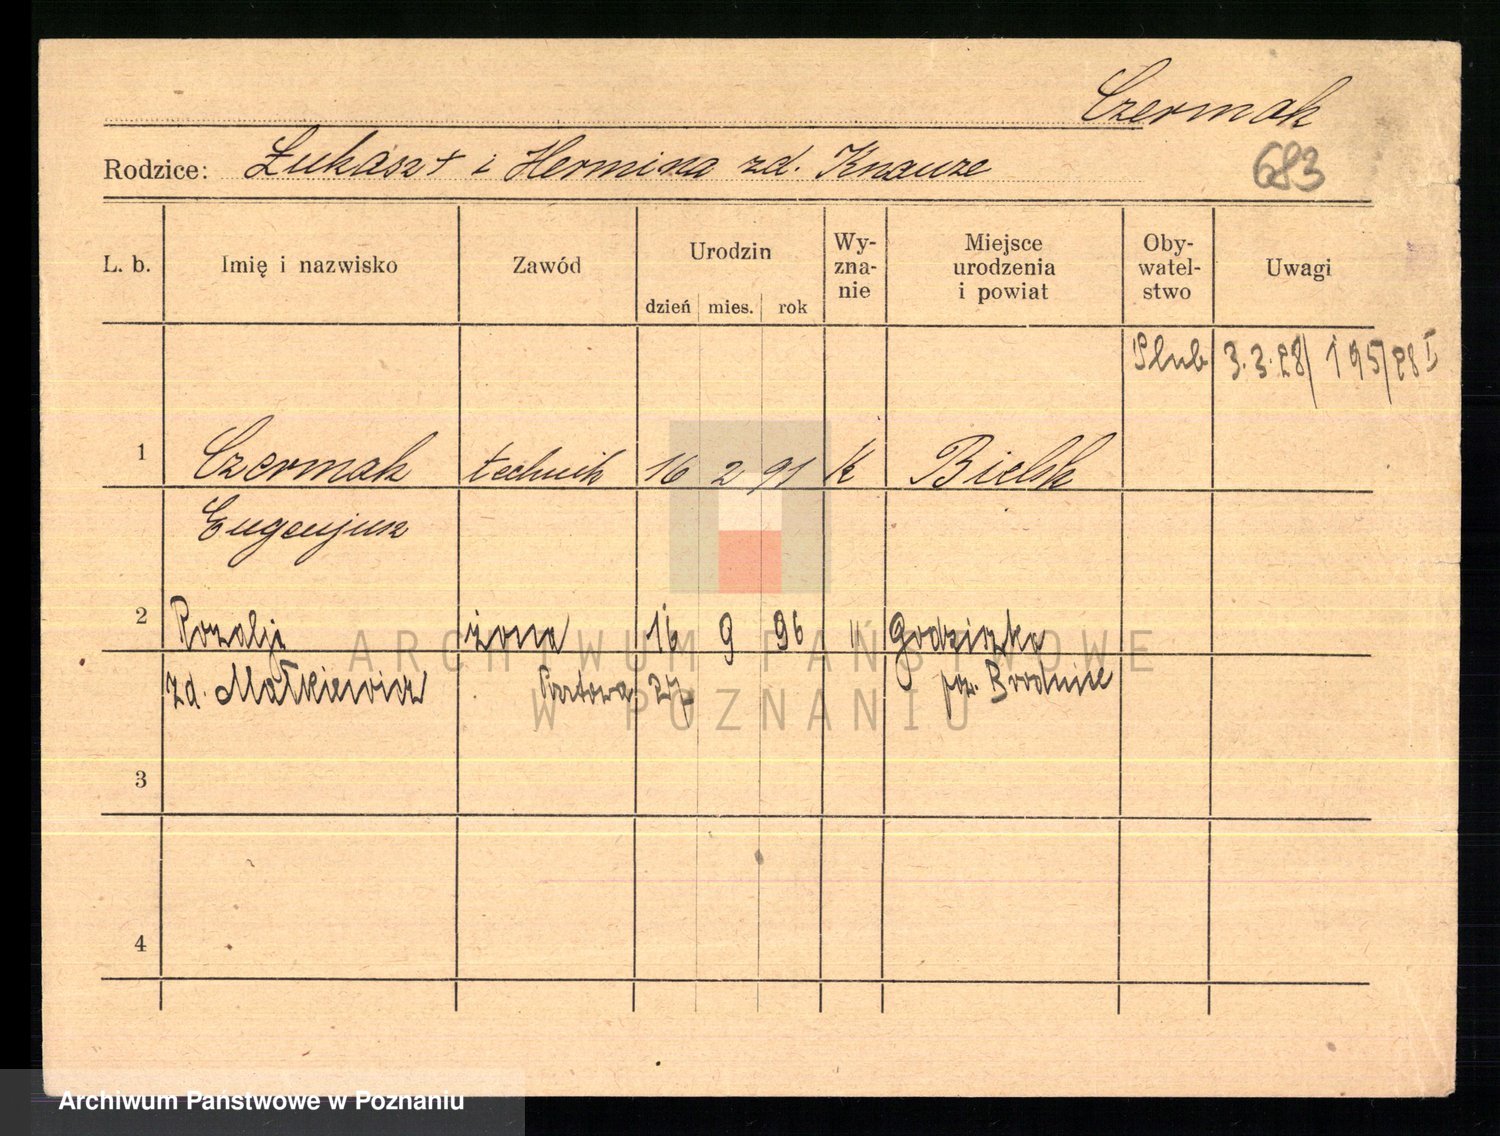 Czermak
Rodzice: Łukasz + i Hermina zd. Knauze
683
L. b. Imię i nazwisko Zawód Urodzin dzień mies. rok Wy-zna-nie Miejsce urodzenia i powiat Oby-watel-stwo Uwagi
Ślub 3.3.28/ 195/28 I
1 Czermak technik 16 2 91 K Bielsk
Eugenjusz
2 Rozalja żona 16 9 96 "
zd. Małkiewicz 27
3
4
ARCHIWUM PAŃSTWOWE
W POZNANIU
Archiwum Państwowe w Poznaniu